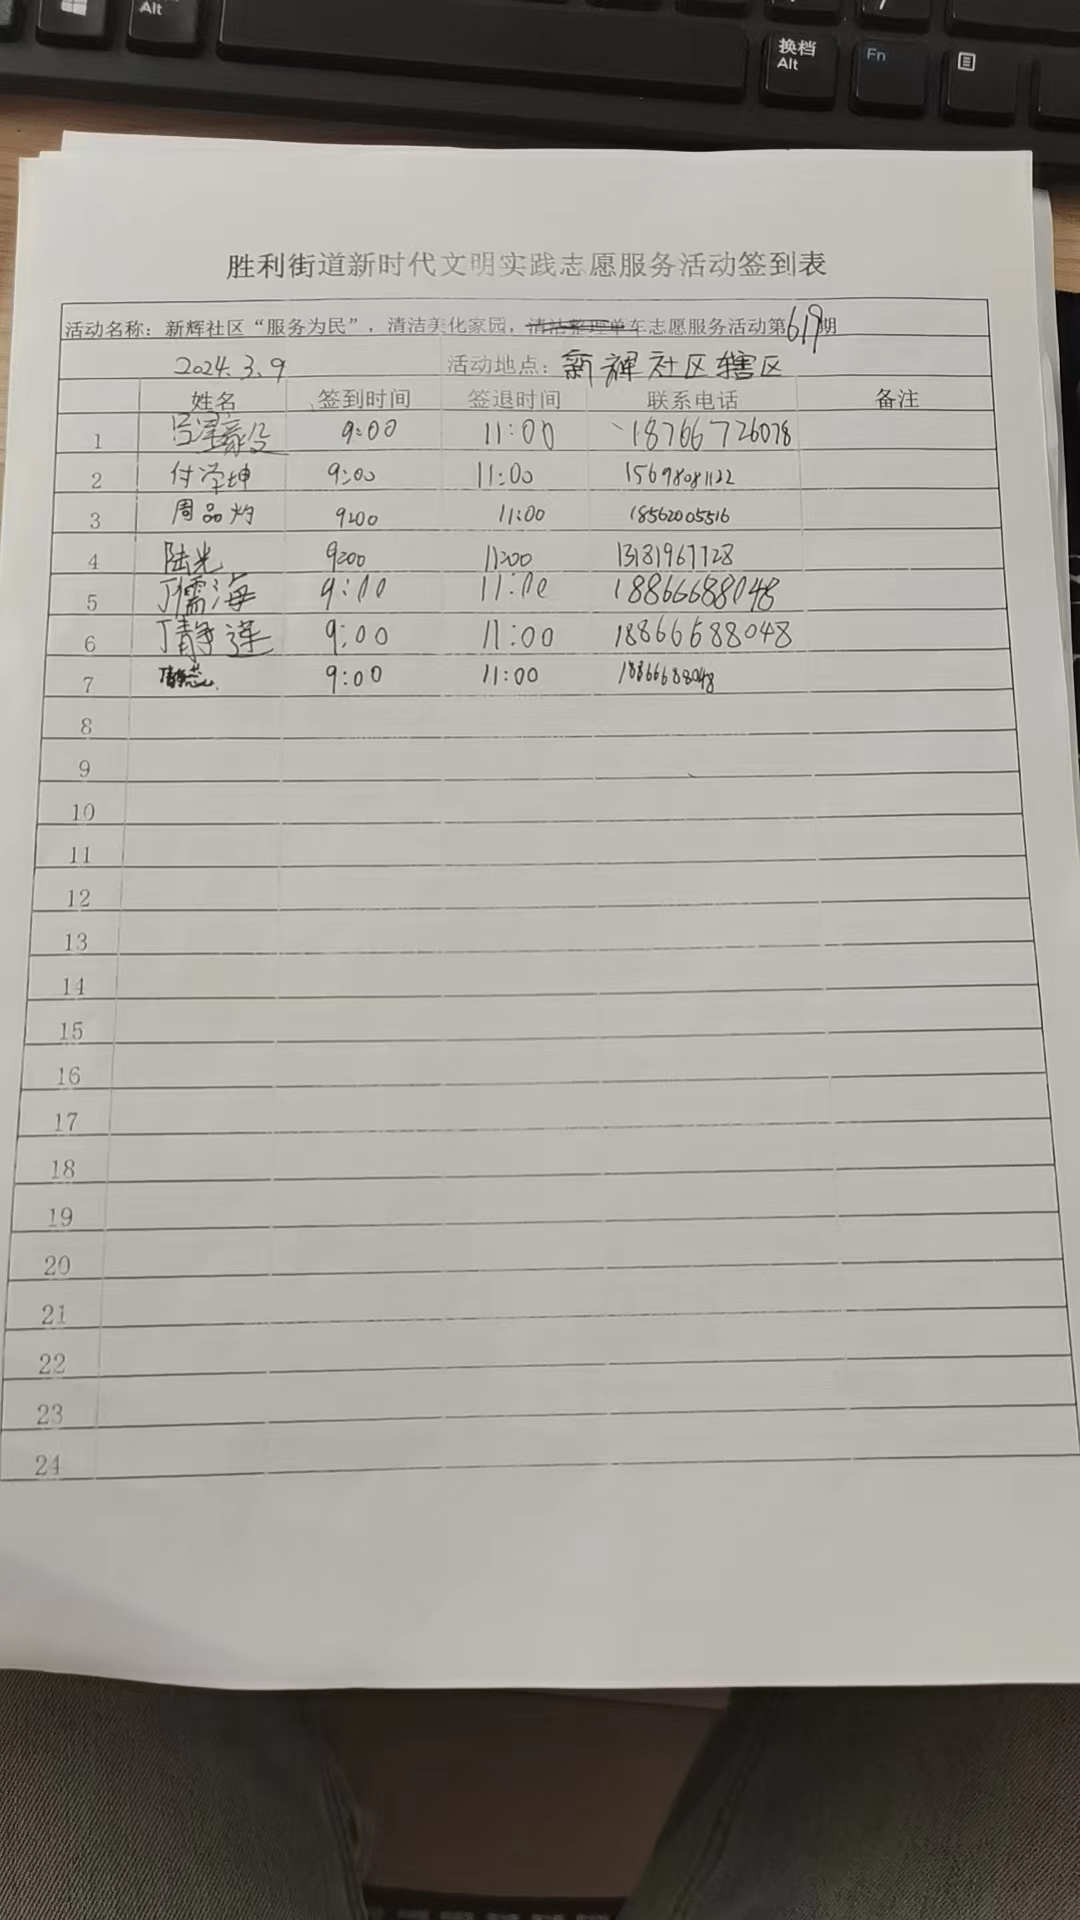 Alt
换档
Alt
Fn
胜利街道新时代文明实践志愿服务活动签到表
活动名称：新辉社区“服务为民”，清洁美化家园，清洁整理单车志愿服务活动第619期
2024.3.9 活动地点：新辉社区辖区
姓名 签到时间 签退时间 联系电话 备注
1 9:00 11:00 18766726078
2 付泽坤 9:00 11:00 15698081122
3 周品灼 9:00 11:00 18562005516
4 陆光 9:00 11:00 13181967728
5 丁儒海 9:00 11:00 18866688048
6 丁静莲 9:00 11:00 18866688048
7 9:00 11:00 18866688048
8
9
10
11
12
13
14
15
16
17
18
19
20
21
22
23
24